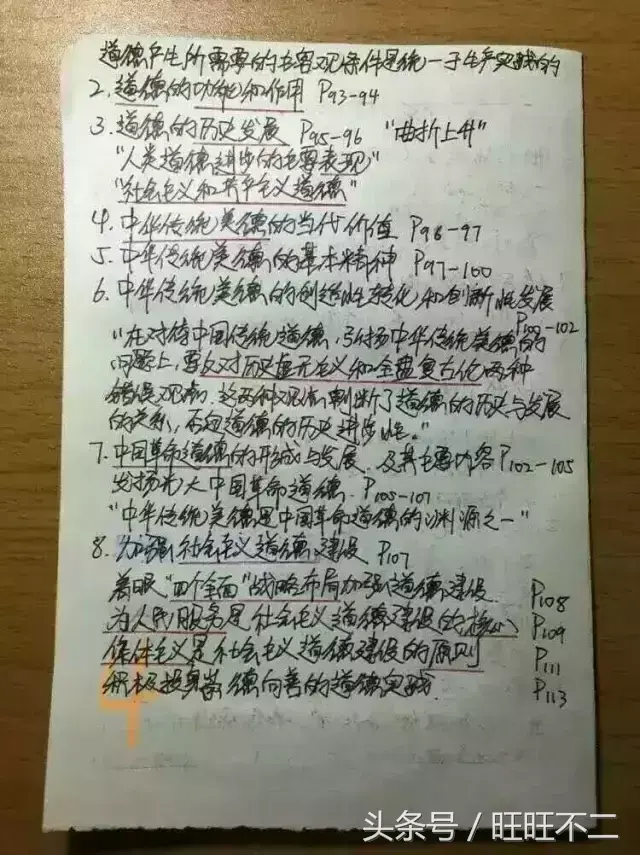 道德产生所需要的主客观条件是统一于生产实践的
2. 道德的功能和作用 P93-94
3. 道德的历史发展 P95-96 “曲折上升”
“人类道德进步的主要表现”
“社会主义和共产主义道德”
4. 中华传统美德的当代价值 P96-97
5. 中华传统美德的基本精神 P97-100
6. 中华传统美德的创造性转化和创新性发展
P100-102
“在对待中国传统道德，弘扬中华传统美德的
问题上，要反对历史虚无主义和全盘复古论两种
错误观点，这两种观点割断了道德的历史与发展
的关系，否定道德的历史进步性。”
7. 中国革命道德的形成与发展 及其主要内容 P102-105
发扬光大中国革命道德 P105-107
“中华传统美德是中国革命道德的渊源之一”
8. 加强社会主义道德建设 P107
着眼“四个全面”战略布局加强道德建设 P108
为人民服务是社会主义道德建设的核心 P109
集体主义是社会主义道德建设的原则 P111
积极投身崇德向善的道德实践 P113
4
头条号 / 旺旺不二